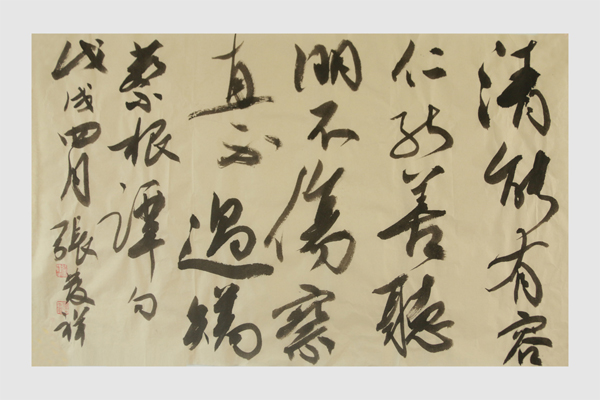 清能有容
仁能善聽
明不傷察
直不過矯
菜根譚句
戊戌四月張祥